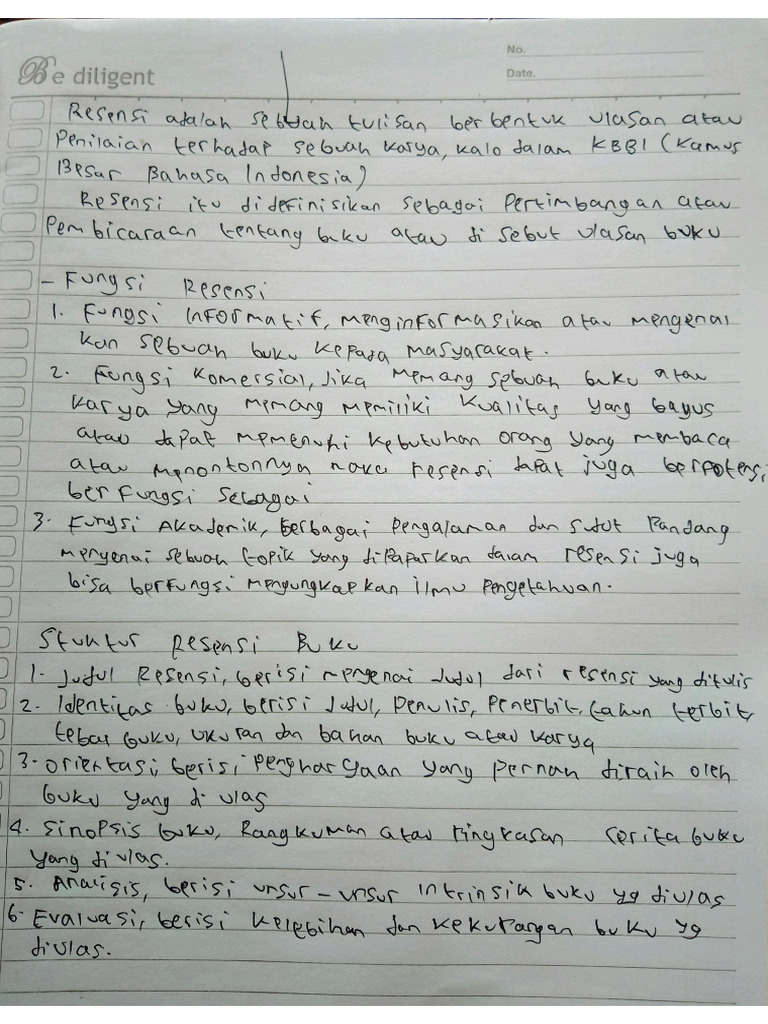 Be diligent
No.
Date.
Resensi adalah sebuah tulisan berbentuk ulasan atau
Penilaian terhadap sebuah karya, kalo dalam KBBI (Kamus
Besar Bahasa Indonesia)
Resensi itu didefinisikan sebagai Pertimbangan atau
Pembicaraan tentang buku atau di sebut ulasan buku
- Fungsi Resensi
1. Fungsi Informatif, menginformasikan atau mengenal
kan sebuah buku kepada masyarakat.
2. Fungsi Komersial, Jika memang sebuah buku atau
karya yang memang memiliki kualitas yang bagus
atau dapat memenuhi kebutuhan orang yang membaca
atau menontonnya maka resensi dapat juga berpotensi
berfungsi sebagai
3. Fungsi Akademik, berbagai pengalaman dan sudut pandang
mengenai sebuah topik yang dipaparkan dalam resensi juga
bisa berfungsi mengungkapkan ilmu pengetahuan.
Stuktur Resensi Buku
1. Judul Resensi, berisi mengenai Judul dari resensi yang ditulis
2. Identitas buku, berisi Judul, Penulis, Penerbit, tahun terbit,
tebal buku, ukuran dan bahan buku atau karya
3. orientasi, berisi penghargaan yang pernah diraih oleh
buku yang di ulas
4. Sinopsis buku, Rangkuman atau ringkasan cerita buku
yang diulas.
5. Analisis, berisi unsur-unsur Intrinsik buku yg diulas
6. Evaluasi, berisi kelebihan dan kekurangan buku yg
diulas.